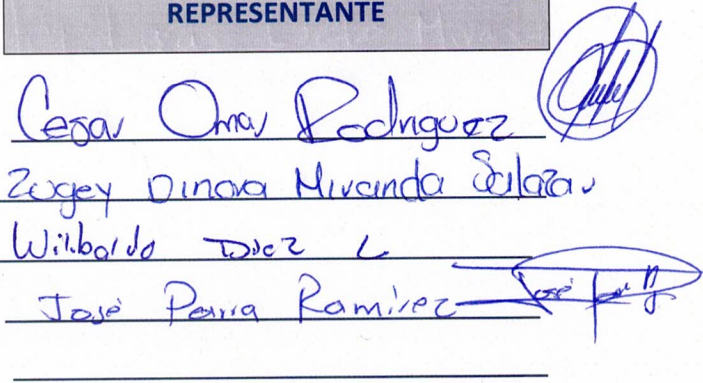 REPRESENTANTE
Cesar Omar Rodriguez
Zugey Dinora Miranda Salazar
Wilibaldo Diez L
José Parra Ramirez José